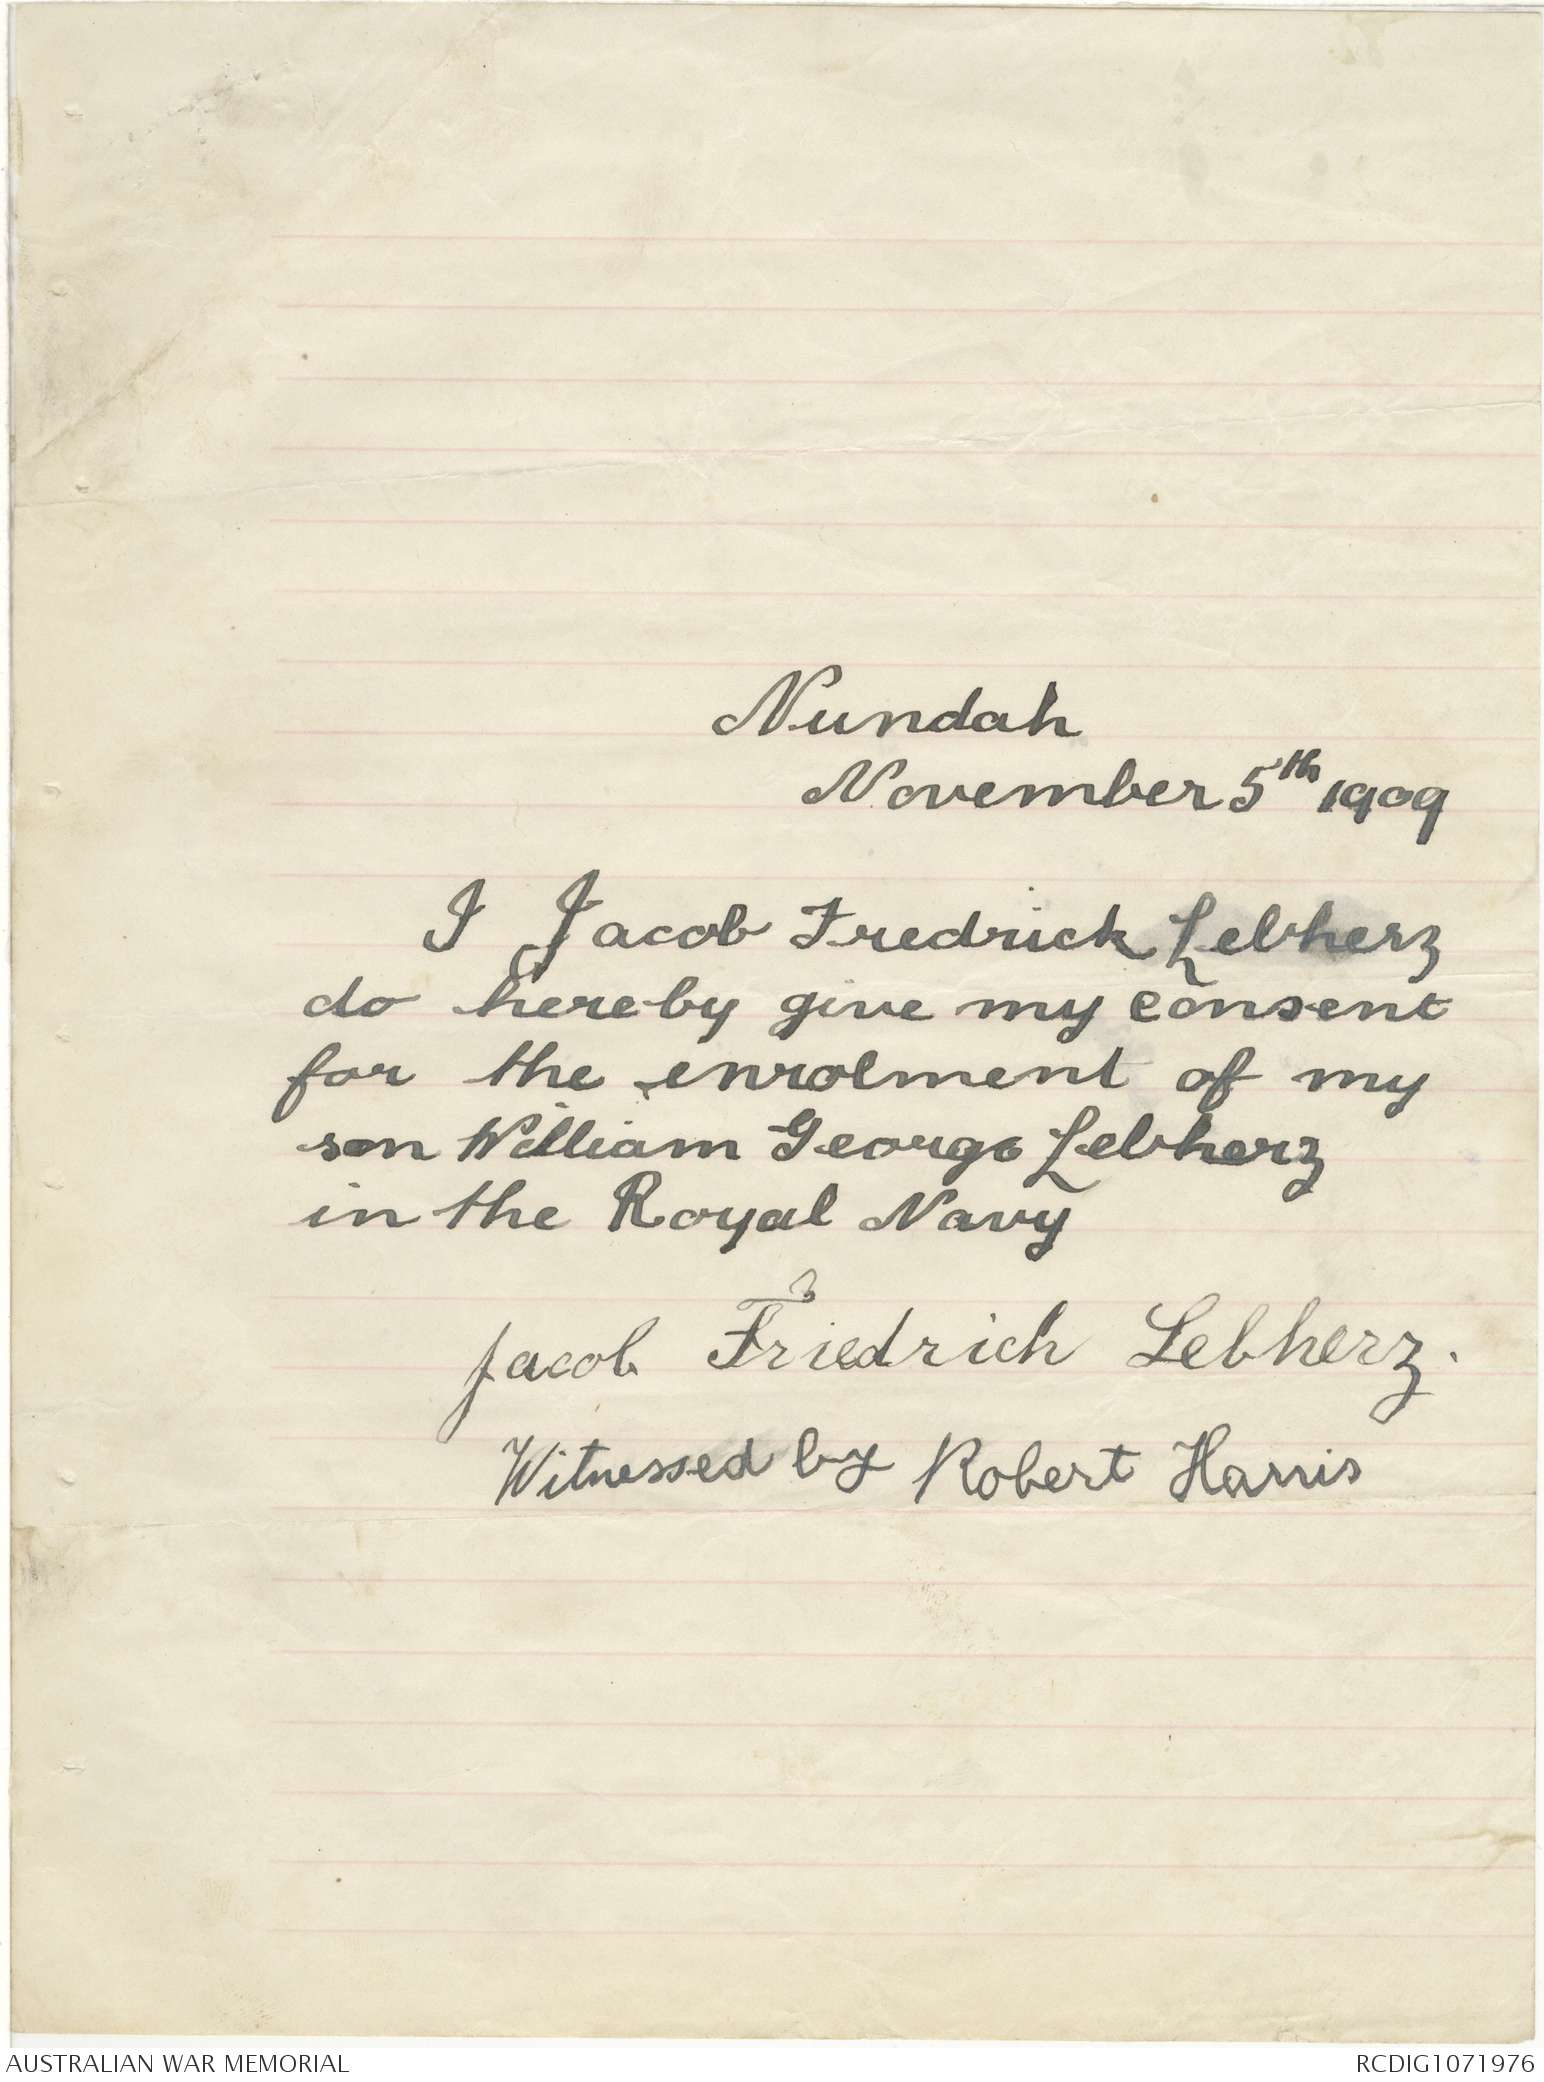 Nundah
November 5th 1909
I Jacob Fredrick Lebherz
do hereby give my consent
for the enrolment of my
son William George Lebherz
in the Royal Navy
Jacob Friedrich Lebherz.
Witnessed by Robert Harris
AUSTRALIAN WAR MEMORIAL
RCDIG1071976